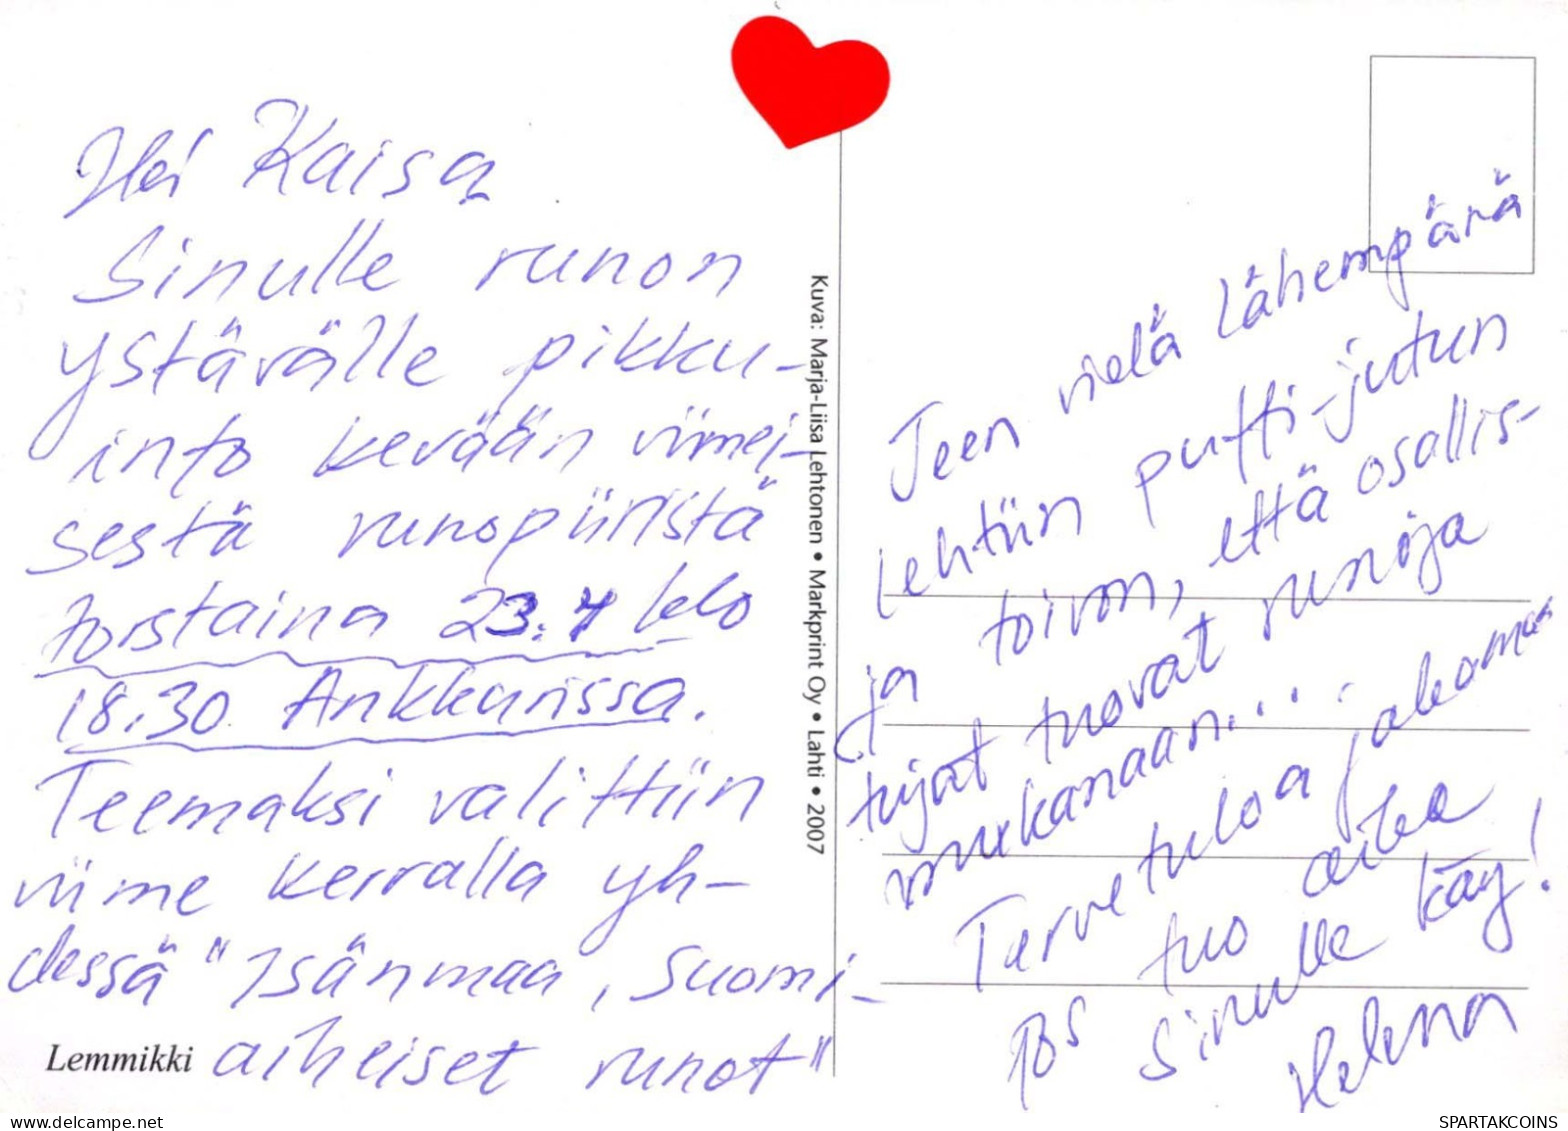 Hei Kaisa
Sinulle runon
ystävälle pikku-
info kevään viimei-
sestä runopiiristä
torstaina 23.4 klo
18.30 Ankkurissa.
Teemaksi valittiin
viime kerralla yh-
dessä "Isänmaa, Suomi-
aiheiset runot"
Lemmikki
Kuva: Marja-Liisa Lehtonen • Markprint Oy • Lahti • 2007
Teen vielä lähempänä
lehtiin putti-jutun
ja toivon, että osallis-
tujat tuovat runoja
mukanaan....
Tervetuloa, jos
tuo aika
Sinulle käy!
Helena
delcampe.net
SPARTAKCOINS